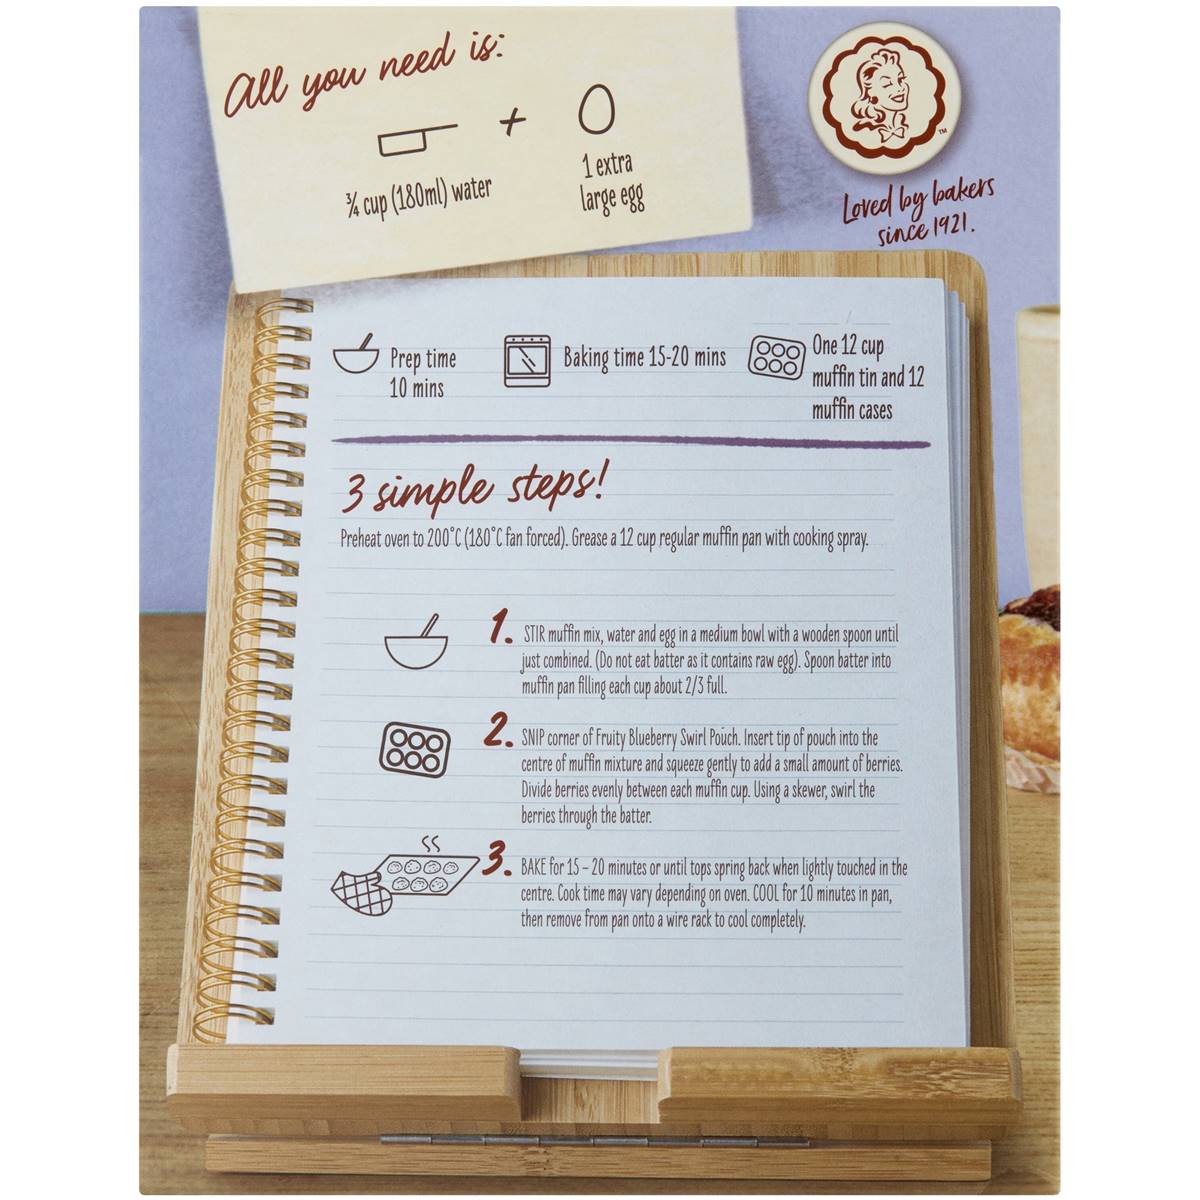 All you need is:
+
¾ cup (180ml) water
1 extra
large egg
TM
Loved by bakers
since 1921.
Prep time
10 mins
Baking time 15-20 mins
One 12 cup
muffin tin and 12
muffin cases
3 simple steps!
Preheat oven to 200°C (180°C fan forced). Grease a 12 cup regular muffin pan with cooking spray.
1. STIR muffin mix, water and egg in a medium bowl with a wooden spoon until
just combined. (Do not eat batter as it contains raw egg). Spoon batter into
muffin pan filling each cup about 2/3 full.
2. SNIP corner of Fruity Blueberry Swirl Pouch. Insert tip of pouch into the
centre of muffin mixture and squeeze gently to add a small amount of berries.
Divide berries evenly between each muffin cup. Using a skewer, swirl the
berries through the batter.
3. BAKE for 15 – 20 minutes or until tops spring back when lightly touched in the
centre. Cook time may vary depending on oven. COOL for 10 minutes in pan,
then remove from pan onto a wire rack to cool completely.